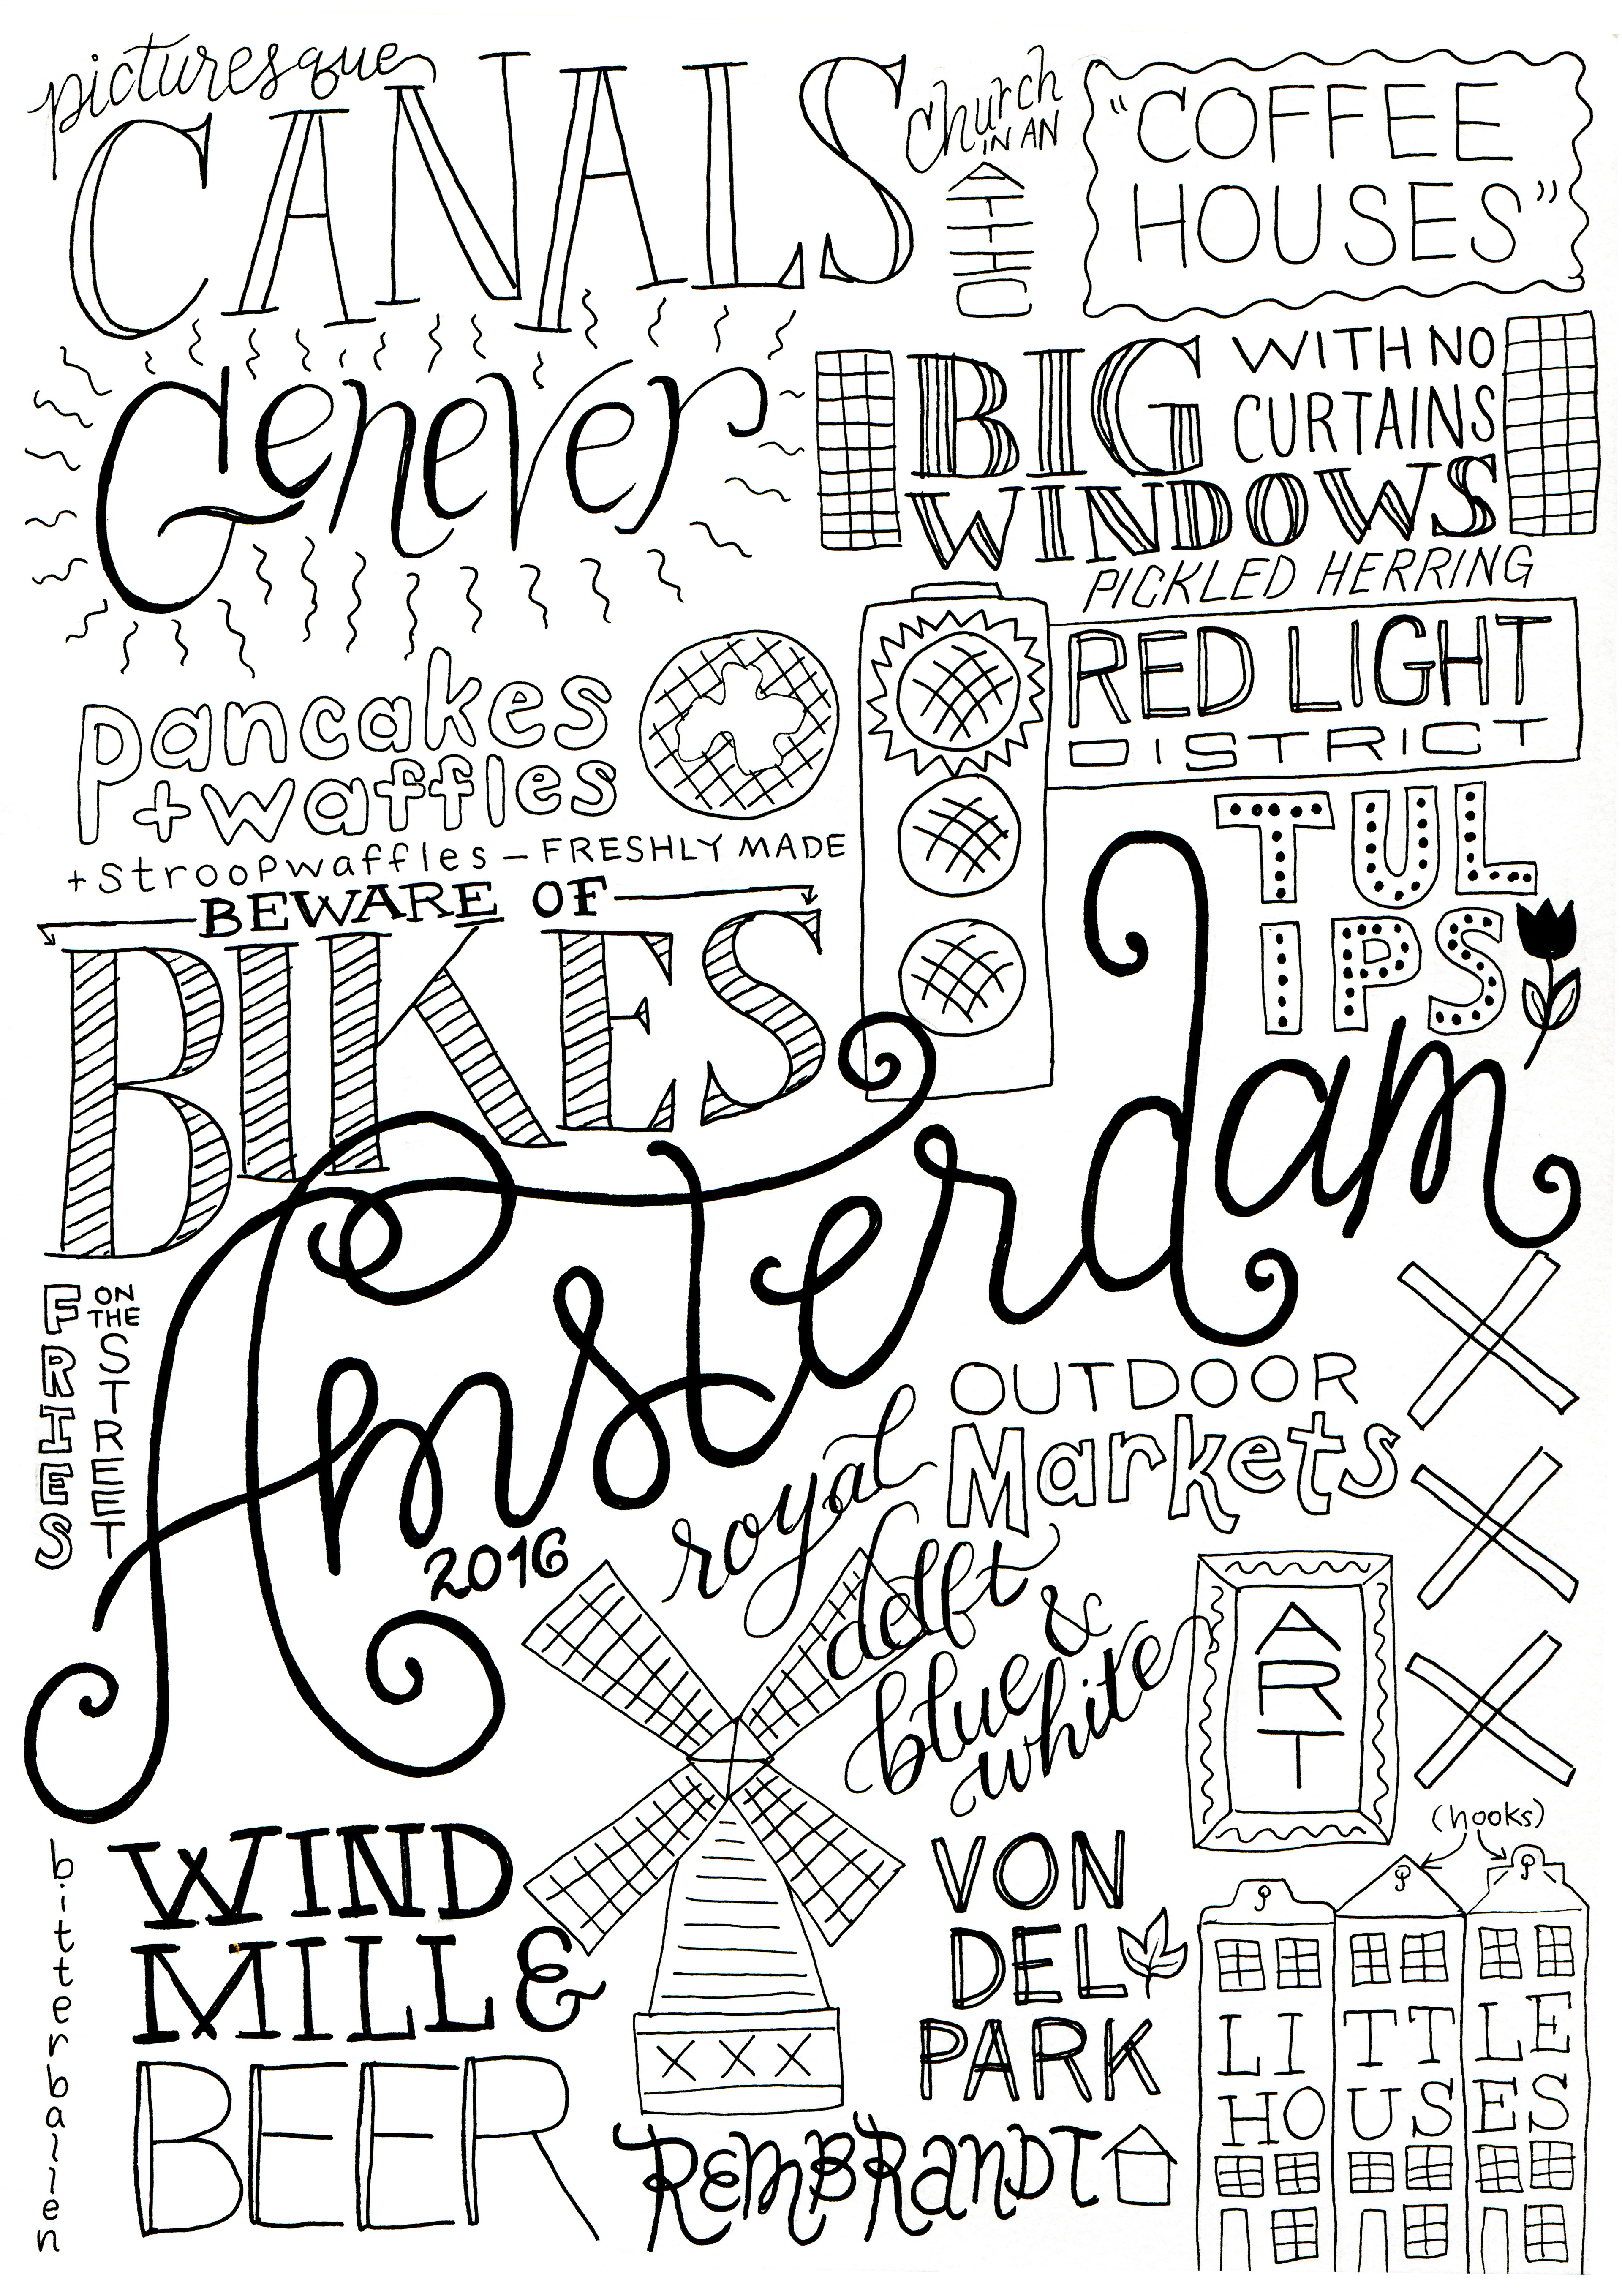 picturesque
CANALS
church
IN AN
ATTIC
"COFFEE
HOUSES"
Genever
BIG
WITH NO
CURTAINS
WINDOWS
PICKLED HERRING
RED LIGHT
DISTRICT
pancakes
+waffles
+stroopwaffles – FRESHLY MADE
BEWARE OF
BIKES
TUL
IPS
Amsterdam
2016
FRIES
ON
THE
STREET
OUTDOOR
Markets
royal
delft
blue &
white
ART
(hooks)
bitterballen
WIND
MILL &
BEER
XXX
VON
DEL
PARK
REMBRANDT
LITTLE
HOUSES